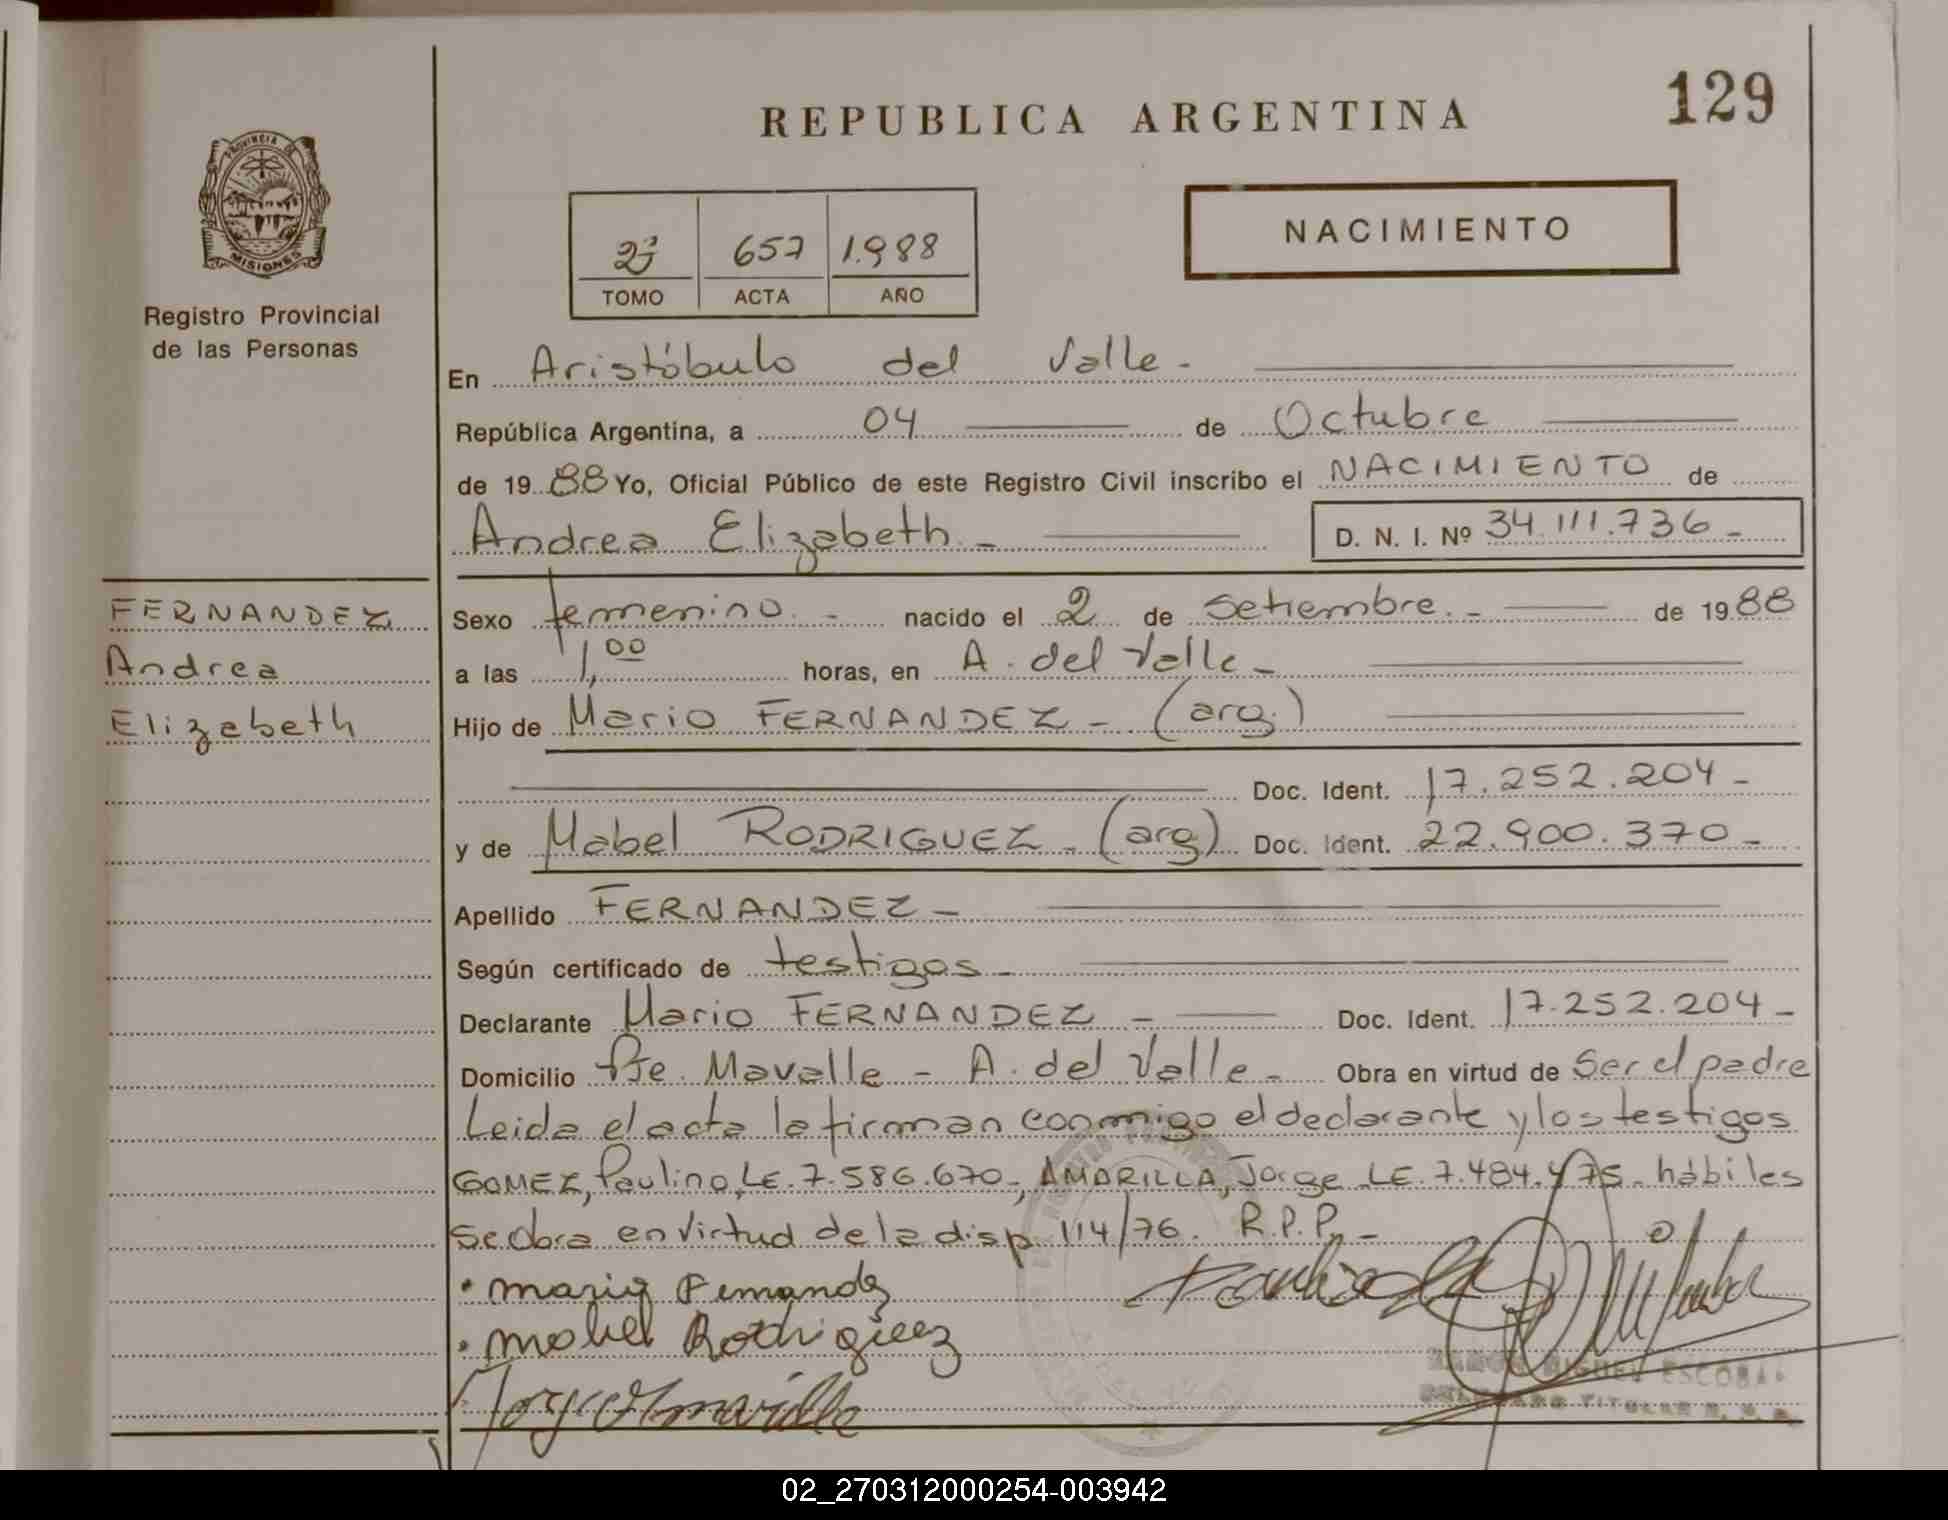 129
REPUBLICA ARGENTINA
PROVINCIA DE
MISIONES
Registro Provincial
de las Personas
NACIMIENTO
2º 657 1.988
TOMO ACTA AÑO
En Aristóbulo del Valle -
República Argentina, a 04 de Octubre
de 19 88 Yo, Oficial Público de este Registro Civil inscribo el NACIMIENTO de
Andrea Elizabeth - D. N. I. Nº 34.111.736 -
FERNANDEZ
Andrea
Elizabeth
Sexo femenino. - nacido el 2 de Setiembre. - de 19 88
a las 1,00 horas, en A. del Valle -
Hijo de Mario FERNANDEZ - (arg.)
Doc. Ident. 17.252.204 -
y de Mabel RODRIGUEZ - (arg) Doc. Ident. 22.900.370 -
Apellido FERNANDEZ -
Según certificado de testigos -
Declarante Mario FERNANDEZ - Doc. Ident. 17.252.204 -
Domicilio Pje. Mavalle - A. del Valle - Obra en virtud de Ser el padre
Leida el acta la firman conmigo el declarante y los testigos
GOMEZ, Paulino, LE. 7.586.670 -, AMARILLA, Jorge LE. 7.484.475 - hábiles
Se obra en virtud de la disp. 114/76. R.P.P. -
Mario Fernandez
Mabel Rodriguez
Jorge Amarilla
RAMON MIGUEL ESCOBAR
DELEGADO TITULAR
02_270312000254-003942